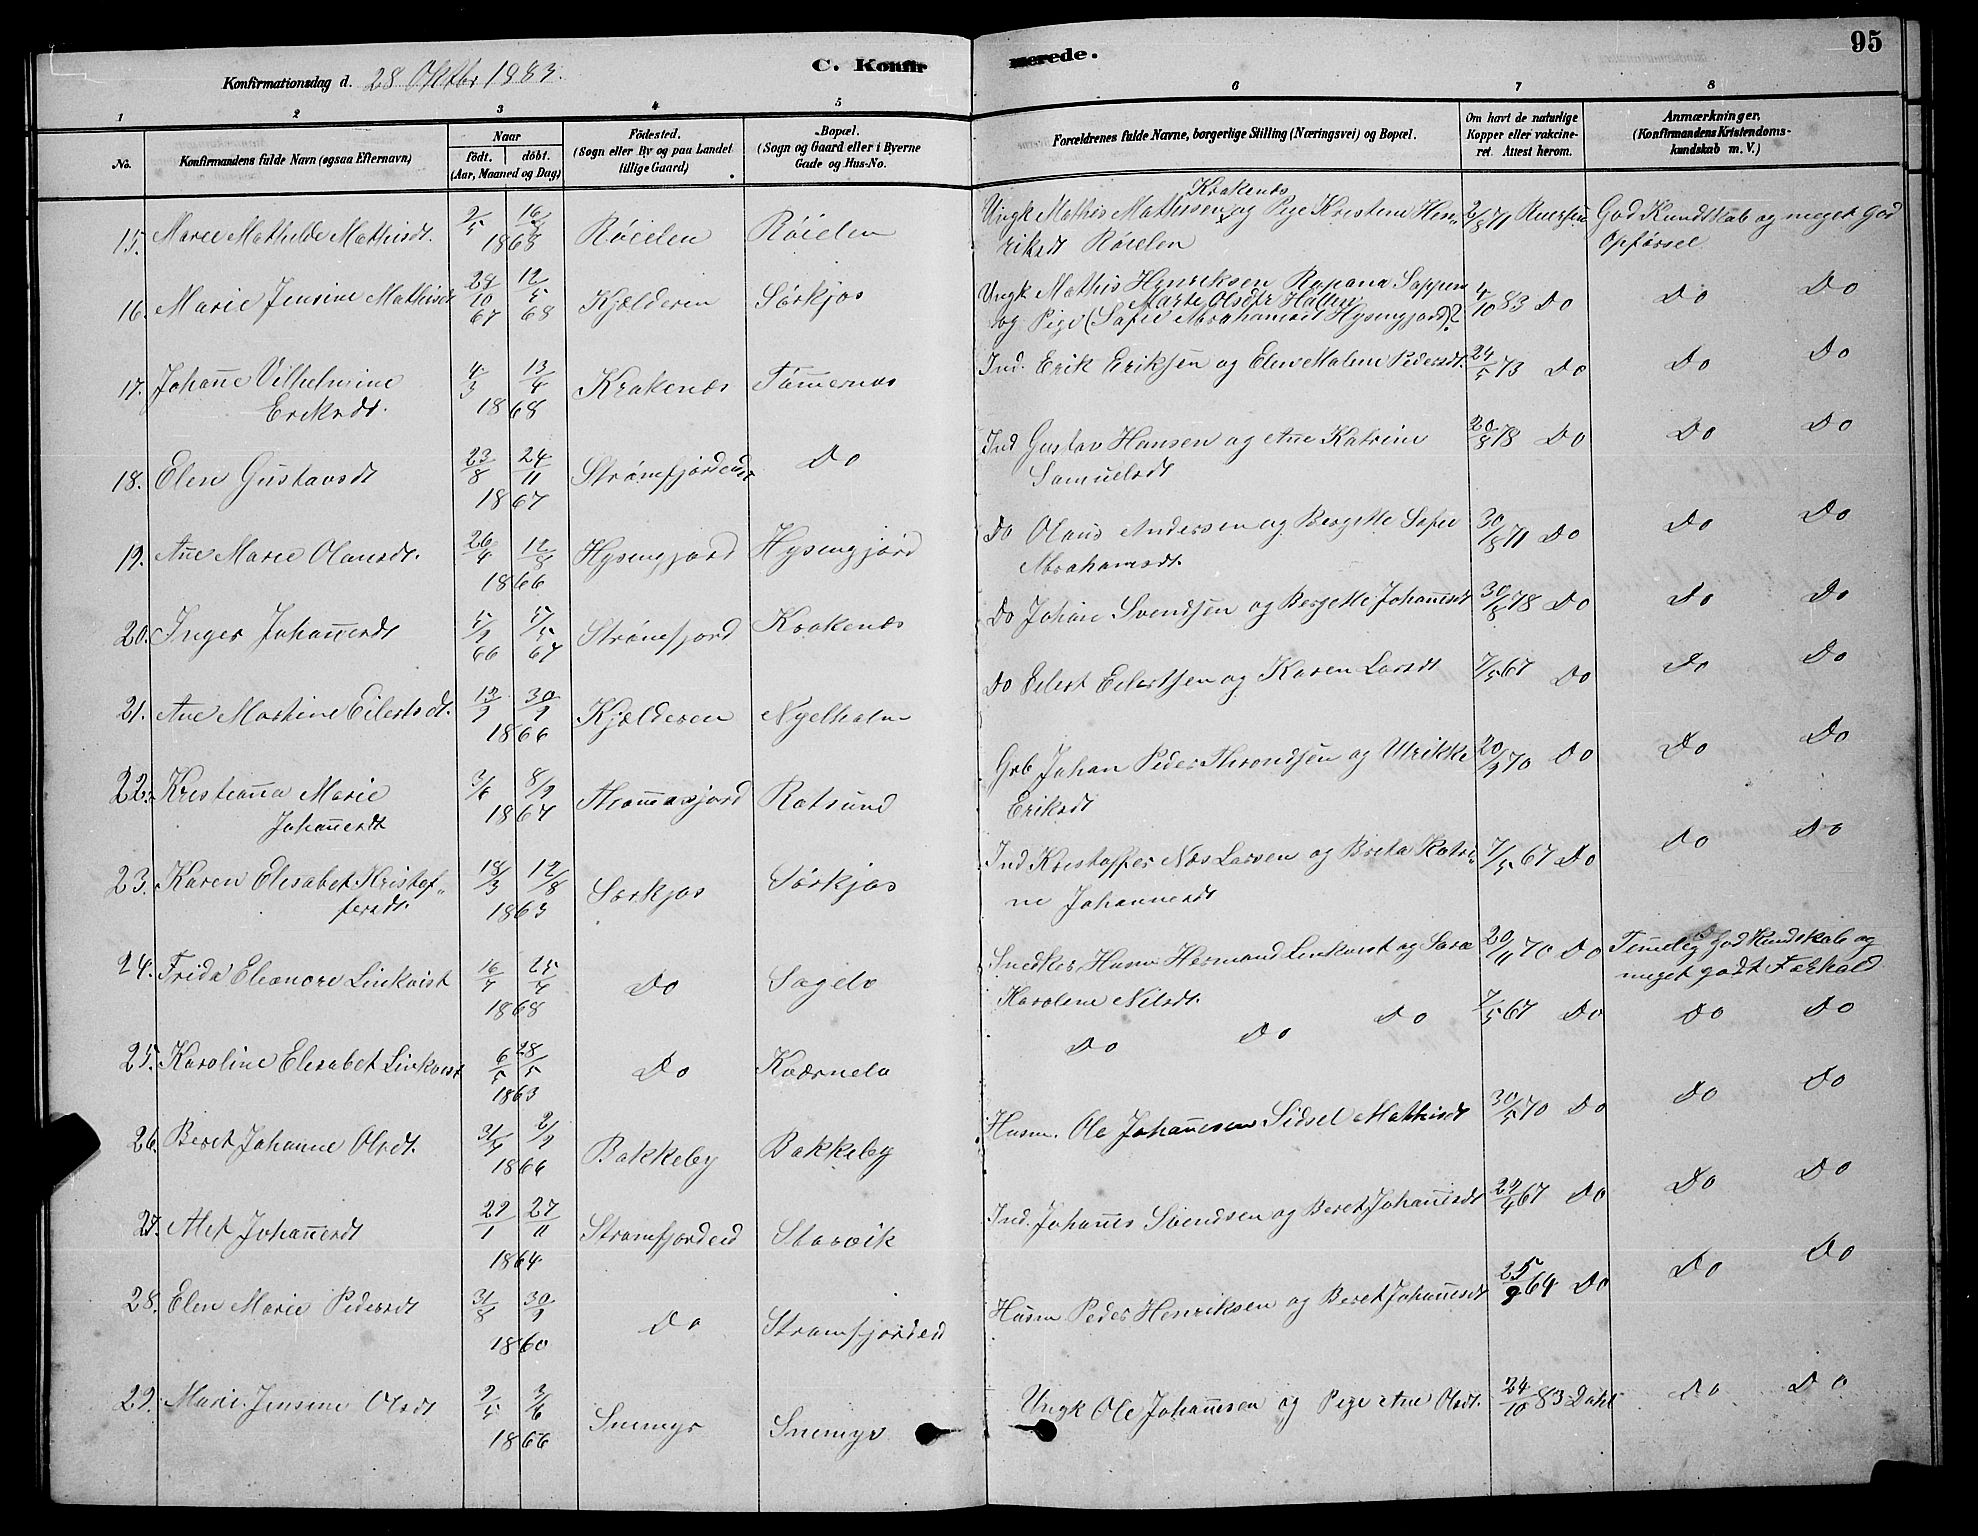 95
C. Konfirmerede.
Konfirmationsdag d. 28 Oktbr 1883.
1 2 3 4 5 6 7 8
No.
Konfirmandens fulde Navn (ogsaa Efternavn)
Naar
födt. döbt.
(Aar, Maaned og Dag)
Födested.
(Sogn eller By og paa Landet
tillige Gaard)
Bopæl.
(Sogn og Gaard eller i Byerne
Gade og Hus-No.
Forældrenes fulde Navne, borgerlige Stilling (Næringsvei) og Bopæl.
Om havt de naturlige
Kopper eller vakcine-
ret. Attest herom.
Anmærkninger.
(Konfirmandens Kristendoms-
kundskab m. V.)
15. Marie Mathilde Mathisdt. 2/5 16/8 1868 Röielen Röielen Ungk Mathis Mathissen Krakenes og Pige Kristine Hen-
riksdt Röielen 2/8 71 God Kundskab og meget God
Opförsel
16. Marie Jensine Mathisdt 28/10 67 12/5 68 Kjælderen Sörkjos Ungk Mathis Henriksen Rapana Sappen
Marte Olsdtr Hatten
og Pige (Sofie Abrahamsdt Hysingjord)? 4/10 83 Do Do Do
17. Johanne Vilhelmine
Eriksdt. 4/3 13/4 1868 Krakenæs Tömmernes Ind. Erik Eriksen og Elen Malene Pedersdt. 24/5 73 Do Do Do
18. Elen Gustavsdt 23/8 24/11 1867 Strömfjordeidet Do Ind Gustav Hansen og Ane Katrine
Samuelsdt 20/8 78 Do Do Do
19. Ane Marie Olausdt. 26/4 12/8 1866 Hysingjord Hysingjord Do Olaus Andersen og Bergitte Sofie
Abrahamsdt. 30/8 71 Do Do Do
20. Inger Johannesdt 5/9 66 5/5 67 Strömfjord Krakenæs Do Johan Svendsen og Bergitte Johannesdt 30/8 78 Do Do Do
21. Ane Martine Eilertsdt. 12/9 30/9 1866 Kjælderen Nyelholm Do Eilert Eilertsen og Karen Larsdt 7/5 67 Do Do Do
22. Kristianna Marie
Johannesdt 3/6 8/9 1867 Rotsund Grb Johan Peder Throndsen og Ulrikke
Eriksdt 20/9 70 Do Do Do
23. Karen Elisabet Kristof-
fersdt. 18/3 12/8 1863 Sörkjos Sörkjos Ind Kristoffer Nes Larsen og Breta Katri-
ne Johannesdt 7/5 67 Do Do Do
24. Frida Eleonore Linkvist 16/4 25/4 1868 Do Sagelv Snedker Husm Hermand Linkvist og Sara
Karoline Nilsdt. 20/11 70 Do Temelig God Kundskab og
meget godt Forhold
25. Karoline Elisabet Linkvist 6/5 28/5 1863 Do Kværnelv Do Do Do 7/5 67 Do Do Do
26. Beret Johanne Olsdt. 31/7 2/9 1866 Bakkeby Bakkeby Husm. Ole Johannesen Sidsel Mathisdt 30/5 70 Do Do Do
27. Alet Johannesdt 22/1 27/11 1864 Strömfjordeid Storvik Ind. Johannes Svendsen og Beret Johannesdt 22/4 67 Do Do Do
28. Elen Marie Pedersdt 31/8 30/9 1860 Do Strömfjordeid Husm Peder Henriksen og Beret Johannesdt 25/9 64 Do Do Do
29. Marie Jensine Olsdt 2/5 3/6 1866 Snemyr Snemyr Ungk Ole Johannesen og Pige Ane Olsdt. 24/10 83 Dahl Do Do